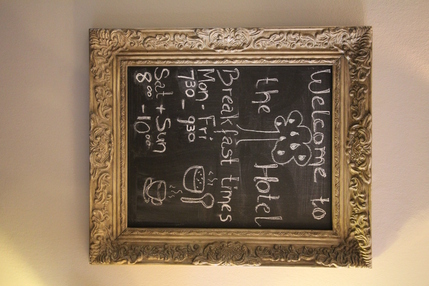 Welcome to
the Hotel
Breakfast times
Mon - Fri
730 - 930
Sat + Sun
8.00 - 10.00